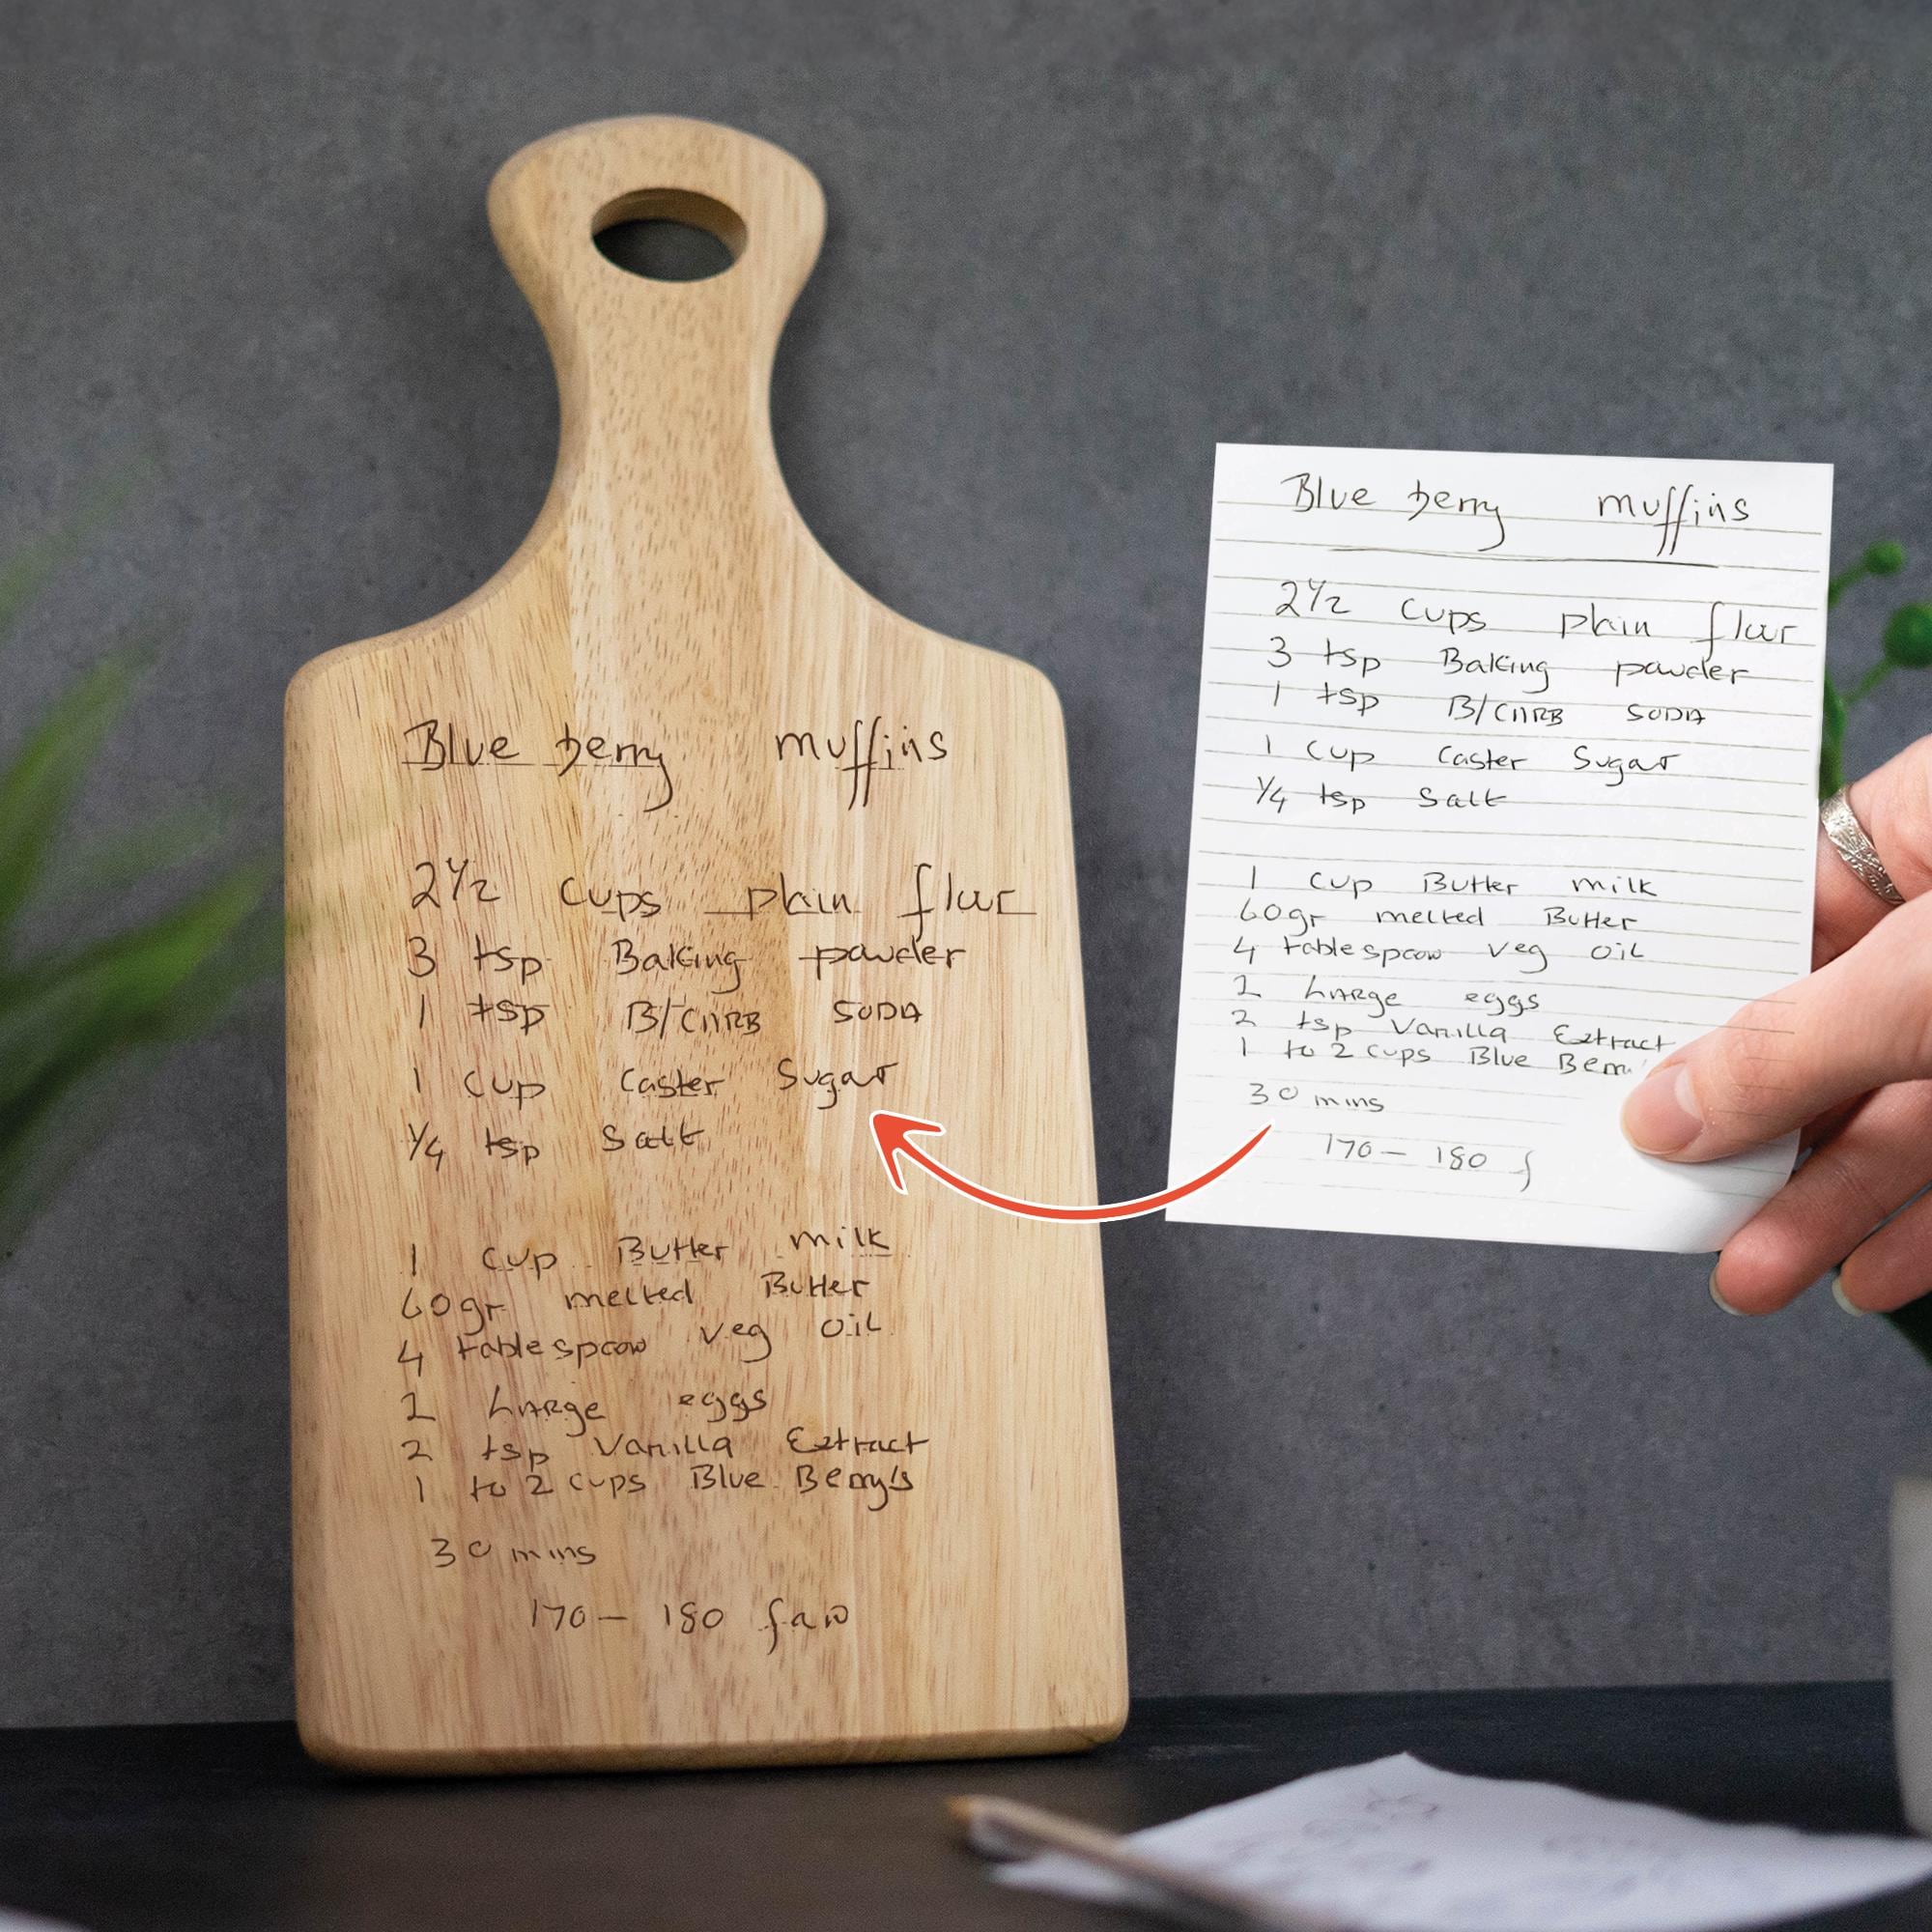 Blue berry muffins
2 1/2 cups plain flour
3 tsp Baking powder
1 tsp B/CARB SODA
1 cup Caster Sugar
1/4 tsp Salt
1 cup Butter milk
60gr melted Butter
4 tablespoon veg oil
2 LARge eggs
2 tsp Vanilla Extract
1 to 2 cups Blue Berry's
30 mins
170 - 180 fan
Blue berry muffins
2 1/2 cups plain flour
3 tsp Baking powder
1 tsp B/CARB SODA
1 cup Caster Sugar
1/4 tsp Salt
1 cup Butter milk
60gr melted Butter
4 tablespoon veg oil
2 LARge eggs
2 tsp Vanilla Extract
1 to 2 cups Blue Berr
30 mins
170 - 180 f